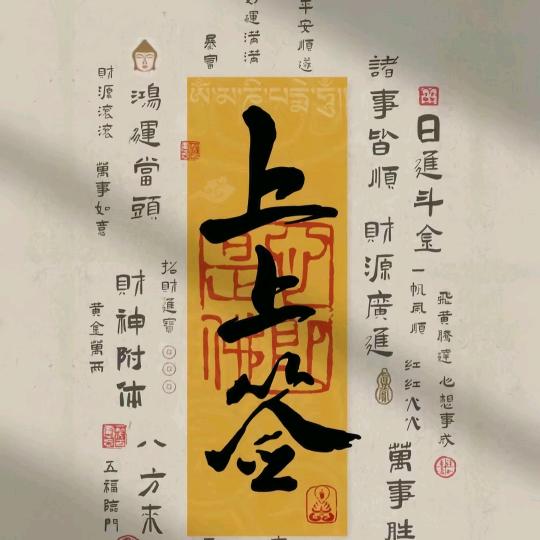 飛黃騰達
心想事成
日進斗金
一帆風順
紅紅火火
諸事皆順
財源廣進
萬事胜
平安順遂
好運滿滿
暴富
上上签
鴻運當頭
招財進寶
財神附体
八方来
財源滾滾
萬事如意
黃金萬兩
五福臨門